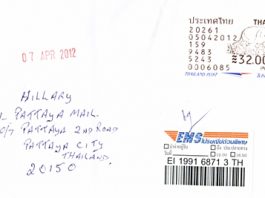 07 APR 2012
ประเทศไทย THA
20261
05042012
159
9483
5243 ≋32.00
0006085
THAILAND POST
HILLARY
L PATTAYA MAIL.
0/7 PATTAYA 2ND ROAD
PATTAYA CITY
THAILAND
20150
EMS
EI 1991 6871 3 TH